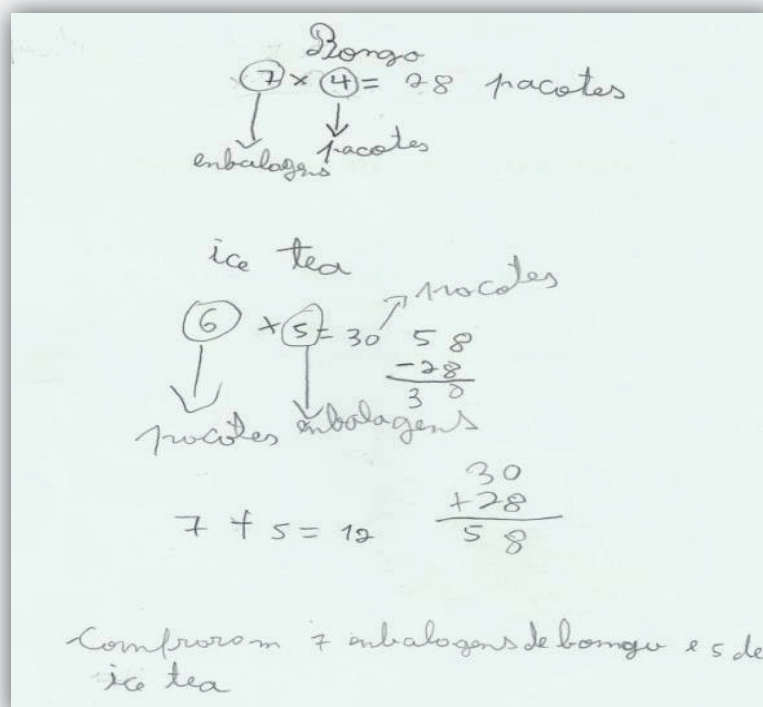 Bongo
7 × 4 = 28 pacotes
enbalagens pacotes
ice tea
6 × 5 = 30 pacotes
58
-28
30
pacotes enbalagens
7 + 5 = 12
30
+28
58
Compraram 7 enbalagens de bomgu e 5 de
ice tea